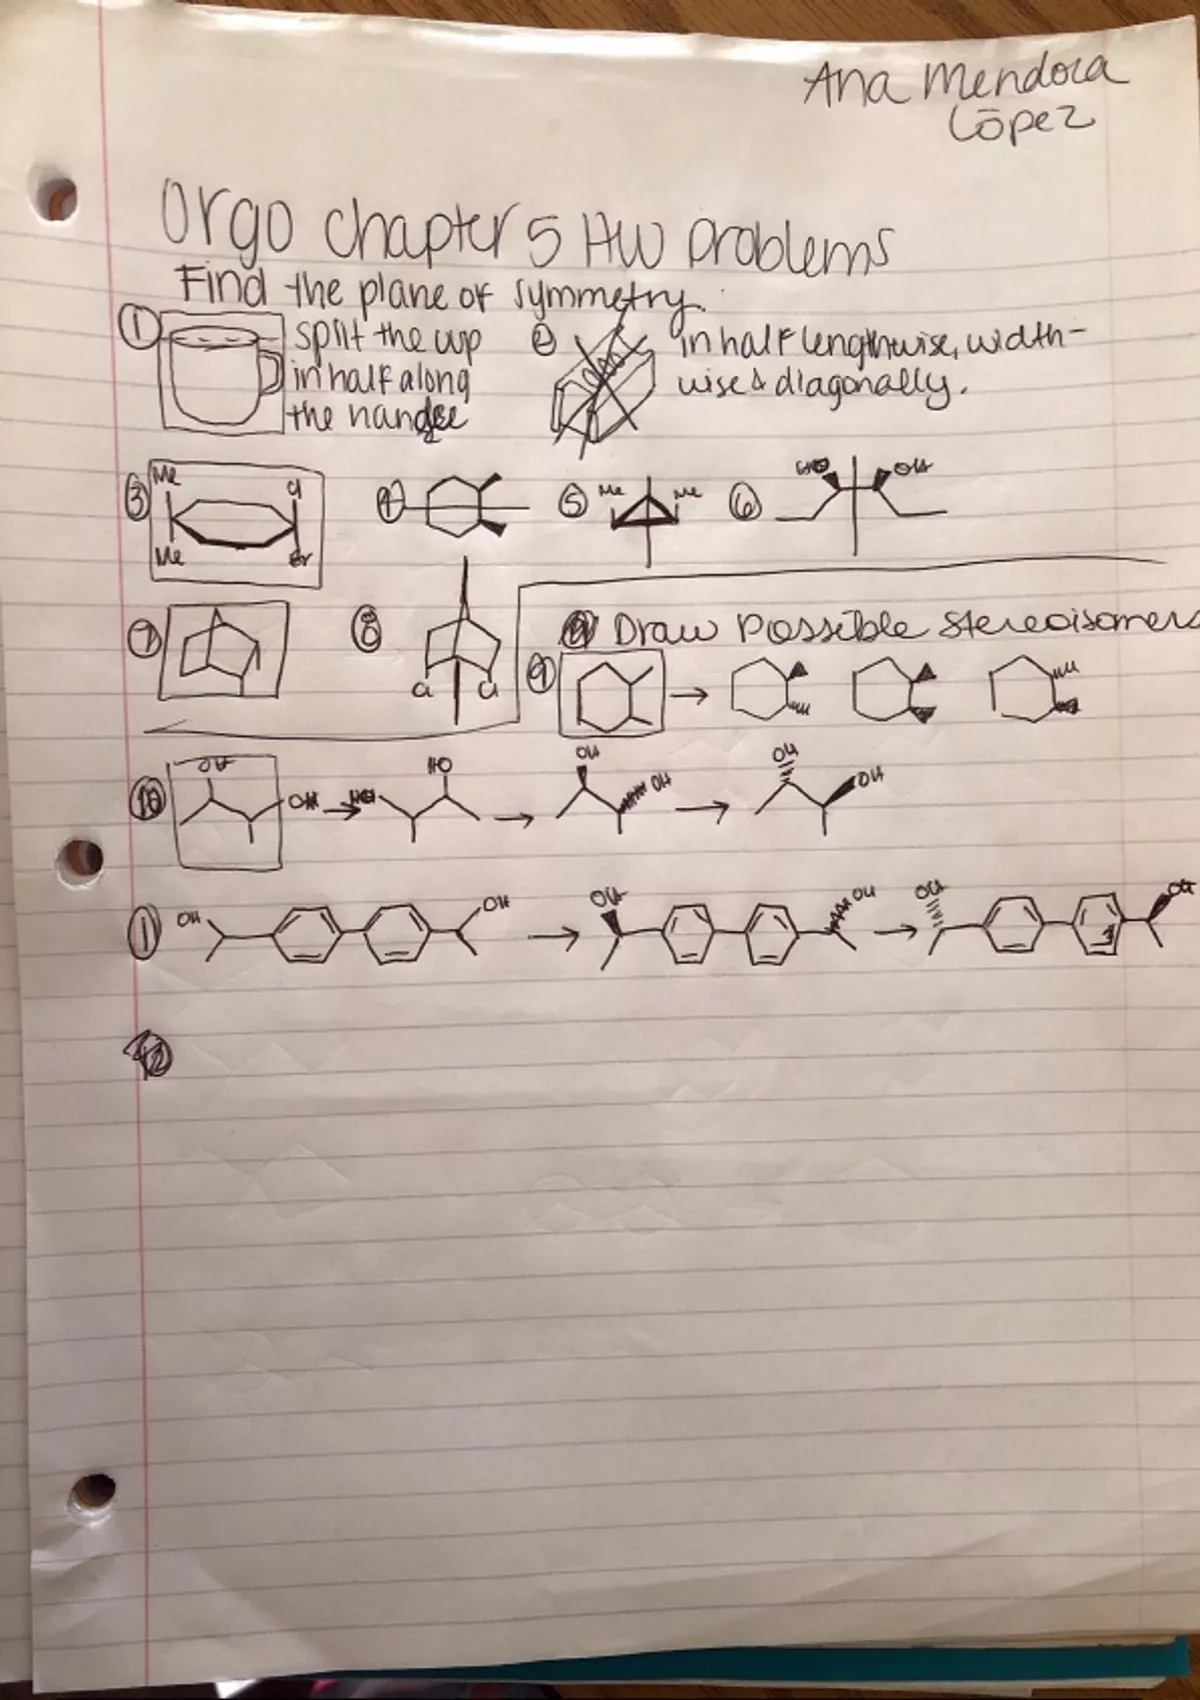 Ana Mendoza
López
Orgo chapter 5 HW Problems
Find the plane of symmetry.
① split the cup
in half along
the handle
② in half lengthwise, width-
wise & diagonally.
③ Me Cl
Me Br
④ ⑤ Me Me ⑥ HO OH
⑦ ⑧ Cl Cl
Draw Possible Stereoisomers
⑨
⑩ OH OH → HO HO → OH OH → OH OH
⑪ OH OH → OH OH → OH OH